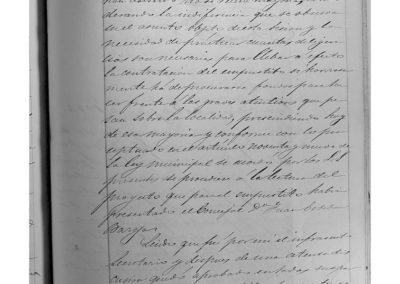 derando la indiferencia que se observa
en el asunto objeto de esta sesion y la
necesidad de practicar cuantas diligen
cias son necesarias para llebar a efecto
la contratacion del empréstito
mente ha de procurarse fondos para ha
cer frente a las graves atenciones que pe
san sobre la localidad, prescindiendo hoy
de esa mayoria y conforme con lo pre
ceptuado en el articulo noventa y nueve de
la ley municipal se acordó por los S.S.
presentes se procediera a la lectura del
proyecto que para el empréstito habia
presentado el Concejal Dn Juan
Barjas
Leido que fué por mi el infrascrito
Secretario y despues de una atenta dis
cusion quedó aprobado en todas